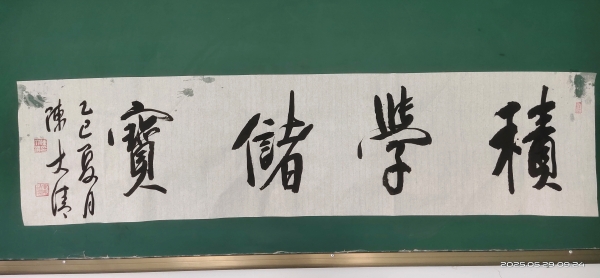 積學儲寶
乙巳夏月
陳大清
2025.05.29 09:24